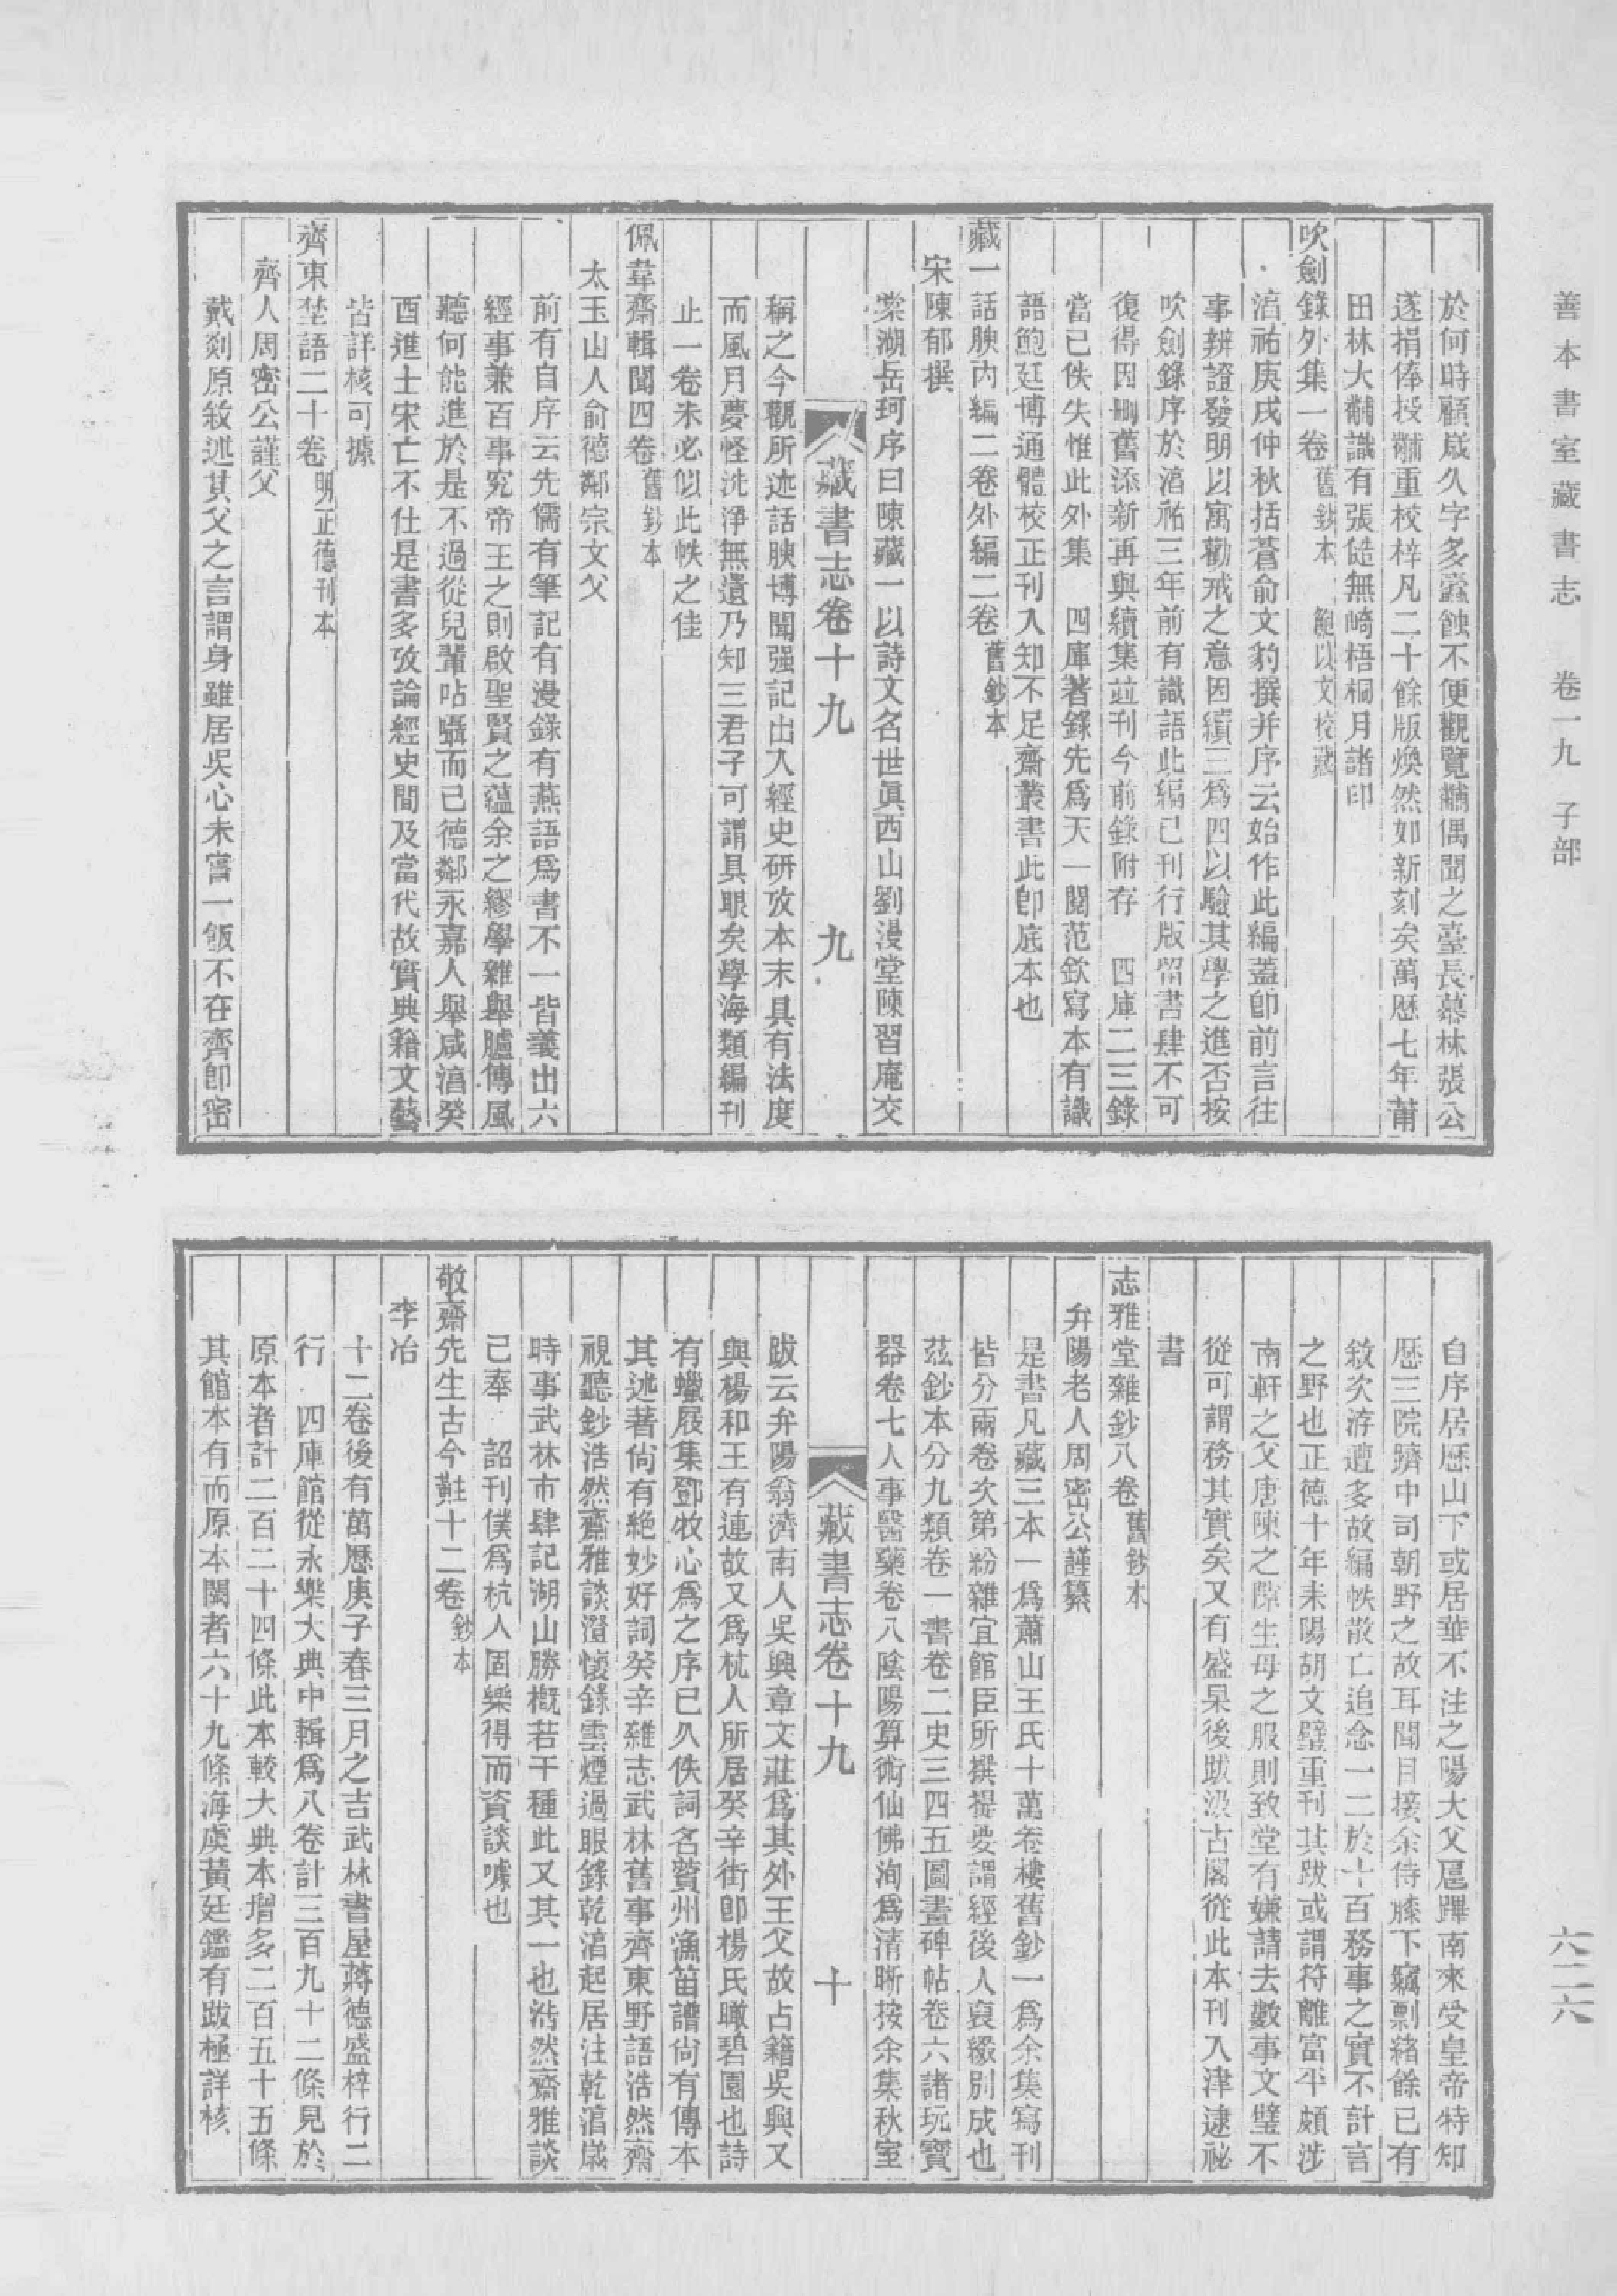 善本書室藏書志　卷一九　子部
於何時顧歲久字多蠹蝕不便觀覽黼偶聞之臺長慕林張公
遂捐俸授黼重校梓凡二十餘版煥然如新刻矣萬歷七年莆
田林大黼識有張隨無崎梧桐月諸印
吹劍錄外集一卷舊鈔本　鮑以文校藏
淳祐庚戌仲秋括蒼俞文豹撰并序云始作此編蓋卽前言往
事辨證發明以寓勸戒之意因續三爲四以驗其學之進否按
吹劍錄序於淳祐三年前有識語此編已刊行版留書肆不可
復得因刪舊添新再與續集並刊今前錄附存　四庫二三錄
當已佚失惟此外集　四庫著錄先爲天一閣范欽寫本有識
語鮑廷博通體校正刊入知不足齋叢書此卽底本也
藏一話腴內編二卷外編二卷舊鈔本
宋陳郁撰
棠湖岳珂序曰陳藏一以詩文名世眞西山劉漫堂陳習庵交
藏書志卷十九　九
稱之今觀所述話腴博聞强記出入經史研攷本末具有法度
而風月夢怪洗淨無遺乃知三君子可謂具眼矣學海類編刊
止一卷未必似此帙之佳
佩韋齋輯聞四卷舊鈔本
太玉山人俞德鄰宗文父
前有自序云先儒有筆記有漫錄有燕語爲書不一皆義出六
經事兼百事究帝王之則啟聖賢之蘊余之繆學雜舉臚傳風
聽何能進於是不過從兒輩呫囁而已德鄰永嘉人舉咸淳癸
酉進士宋亡不仕是書多攷論經史間及當代故實典籍文藝
皆詳核可據
齊東埜語二十卷明正德刊本
齊人周密公謹父
戴剡原敘述其父之言謂身雖居吳心未嘗一飯不在齊卽密
自序居歷山下或居華不注之陽大父扈蹕南來受皇帝特知
歷三院躋中司朝野之故耳聞目接余侍膝下竊剽緒餘已有
敘次洊遭多故編帙散亡追念一二於十百務事之實不計言
之野也正德十年耒陽胡文璧重刊其跋或謂符離富平頗涉
南軒之父唐陳之隙生母之服則致堂有嫌請去數事文璧不
從可謂務其實矣又有盛杲後跋汲古閣從此本刊入津逮祕
書
志雅堂雜鈔八卷舊鈔本
弁陽老人周密公謹纂
是書凡藏三本一爲蕭山王氏十萬卷樓舊鈔一爲余集寫刊
皆分兩卷次第紛雜宜館臣所撰提要謂經後人裒綴別成也
茲鈔本分九類卷一書卷二史三四五圖畫碑帖卷六諸玩寶
器卷七人事醫藥卷八陰陽算術仙佛洵爲淸晰按余集秋室
藏書志卷十九　十
跋云弁陽翁濟南人吳興章文莊爲其外王父故占籍吳興又
與楊和王有連故又爲杭人所居癸辛街卽楊氏瞰碧園也詩
有蠟屐集鄧牧心爲之序已久佚詞名薲州漁笛譜尙有傳本
其述著尙有絕妙好詞癸辛雜志武林舊事齊東野語浩然齋
視聽鈔浩然齋雅談澄懷錄雲煙過眼錄乾淳起居注乾淳歲
時事武林市肆記湖山勝槪若干種此又其一也浩然齋雅談
已奉　詔刊僕爲杭人固樂得而資談噱也
敬齋先生古今黈十二卷鈔本
李冶
十二卷後有萬歷庚子春三月之吉武林書屋蔣德盛梓行二
行　四庫館從永樂大典中輯爲八卷計三百九十二條見於
原本者計二百二十四條此本較大典本增多二百五十五條
其館本有而原本闕者六十九條海虞黃廷鑑有跋極詳核
六二六